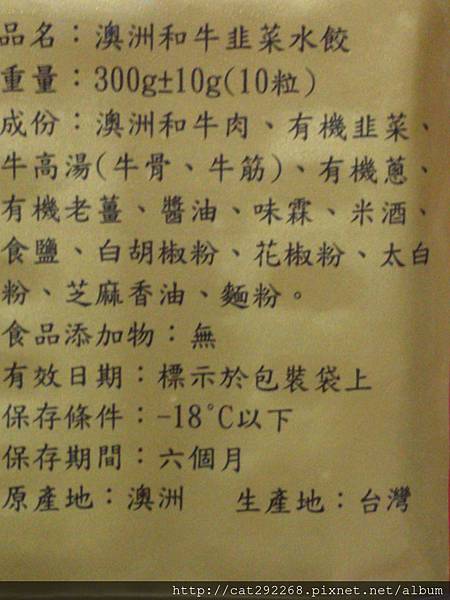 品名：澳洲和牛韭菜水餃
重量：300g±10g(10粒)
成份：澳洲和牛肉、有機韭菜、
牛高湯(牛骨、牛筋)、有機蔥、
有機老薑、醬油、味霖、米酒、
食鹽、白胡椒粉、花椒粉、太白
粉、芝麻香油、麵粉。
食品添加物：無
有效日期：標示於包裝袋上
保存條件：-18°C以下
保存期間：六個月
原產地：澳洲　生產地：台灣
http://cat292268.pixnet.net/album